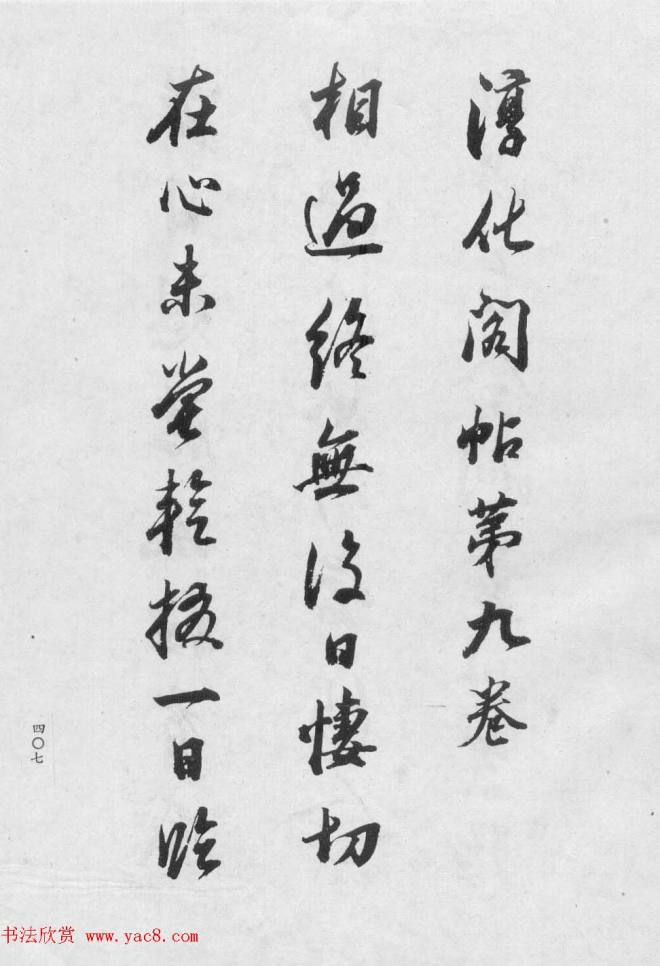 淳化阁帖第九卷
相過終無復日悽切
在心未嘗暫掇一日臨
四〇七
书法欣赏 www.yac8.com